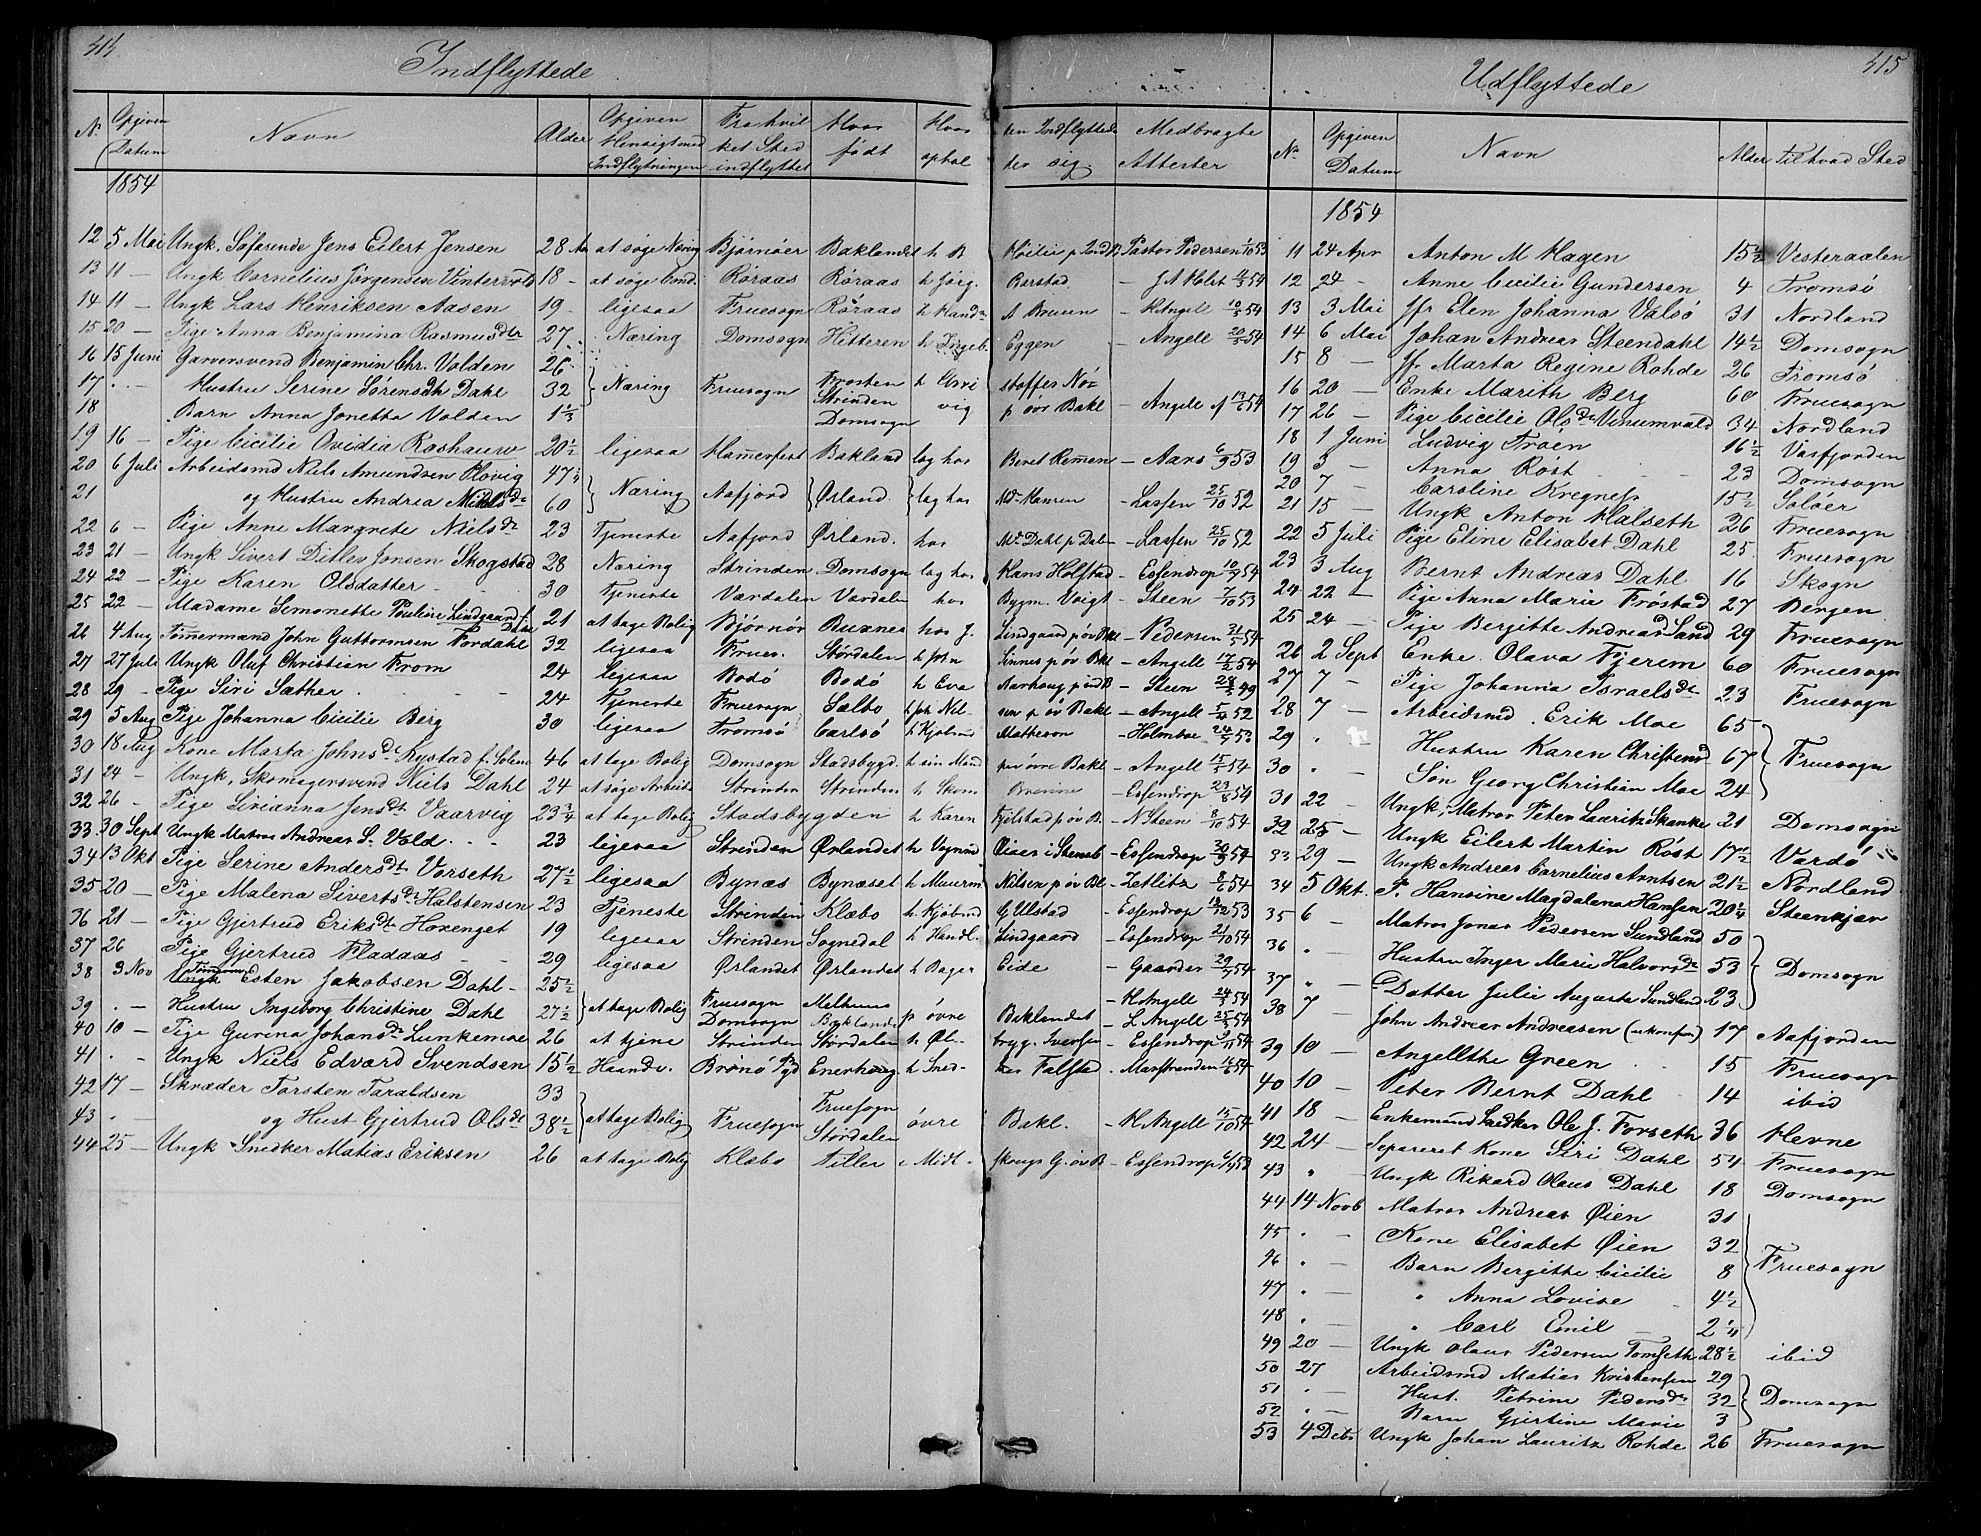 414.
Indflyttede
N. Opgiven Datum Navn Alder Opgiven Hensigt med Indflytningen Fra hvilket Sted indflyttet Hvor født Hvor ophol
1854
12 5 Mai Ungk. Søfarende Jens Eilert Jensen 28 Aa at søge Næring Bjørnøer Baklandet h B
13 11 — Ungk Cornelius Jørgensen Vintervold 18 — at søge Cond. Røraas Røraas h Jørg.
14 11 — Ungk Lars Henriksen Aasen 19 - ligesaa Fruesogn Røraas h Hand
15 20 — Pige Anna Benjamina Rasmusdtr 27. Næring Domsogn Hitteren h Ingeb
16 15 Juni Garversvend Benjamin Chr. Volden 26
17 . — Hustru Serine Sørensdtr Dahl 32 Næring Fruesogn Frosten Strinden h Carvi
18 Barn Anna Jonetta Volden 1 1/3 Domsogn vig
19 16 — Pige Cicilie Ovidia Roshauw 20 1/2 ligesaa Hamerfest Bakland log hos
20 6 Juli Arbeidsmd Nils Amundsen Hovig 47 1/2
21 og Hustru Andrea Nielsdr 60 Næring Aafjord Ørland. log hos
22 6 — Pige Anne Margrete Nielsdr 23 Tjeneste Aafjord Ørland. hos
23 21 — Ungk Sivert Ditlev Jensen Skogstad 28 Næring Strinden Domsogn log hos
24 22 — Pige Karen Olsdatter 30 Tjeneste Værdalen Værdalen hos
25 22 — Madame Simonette Pauline Lindgaard f. Dahl 21 at tage Bolig Bjørnør Buxnes hos J.
26 4 Aug Tømermand John Guttormsen Fordahl 32 ligesaa Frues. Størdalen h John
27 27 Juli Ungk Oluf Christian From 24 ligesaa Bodø Bodø h Eva
28 29 - Pige Siri Sæther 24 Tjeneste Fruesogn Sælbo h Joh Nil-
29 5 Aug Pige Johanna Cicilie Berg 30 ligesaa Tromsø Carlsø h Kjøbmd
30 18 Aug Kone Marta Johnsdr Rystad f. Solem 46 at tage Bolig Domsogn Stadsbygd. h sin Mand
31 24 — Ungk. Skomagersvend Niels Dahl 24 at søge Arbeide Strinden Strinden h Skom
32 26 — Pige Sirianna Jensdt Vaarvig 23 3/4 at tage Bolig Stadsbygden h Karen
33 30 Sept Ungk Matros Andreas S. Vold 23 ligesaa Strinden Ørlandet h Vognmd
34 13 Okt Pige Serine Andersdt Vorseth 27 1/2 ligesaa Bynæs Bynæset h Muurm
35 20 — Pige Malena Sivertsdr Halstensen 23 Tjeneste Strinden Klæbo h. Kjøbmd
36 21 — Pige Gjertrud Eriksdt Hovenget 19 ligesaa Strinden Sognedal h Handl.
37 26 Pige Gjertrud Fladaas 29 ligesaa Ørlandet Ørlandet h Bager
38 3 Nov Tømerm Ungk Esten Jakobsen Dahl 25 1/2
39 . — Hustru Ingeborg Christine Dahl 27 1/2 at tage Bolig Fruesogn Domsogn Melhuus Baklandet p øvre
40 10 — Pige Gurina Johansdr Lunkemoe 26 at tjene Strinden Størdalen h Øl-
41 . — Ungk Niels Edvard Svendsen 15 1/2 Haandv. Brønø Pgd Enerhaug h Sned-
42 17 — Skræder Torsten Taraldsen 33
43 . — og Hust Gjertrud Olsdr 38 1/2 at tage Bolig Fruesogn Fruesogn Størdalen øvre
44 25 — Ungk Snedker Matias Eriksen 26 at tage Bolig Klæbo Tiller i Midl-
415
den Indflyttede der sig. Medbragte Attester
Høilie p Indb. — Pastor Pedersen 1/10 53
Barstad — J A Holst 11/5 54
A Bruun — H Angell 10/5 54
Eggen — Angell 20/5 54
stoffer Nø-
p øvr Bakl — Angell f 13/6 54
Beret Remen — Aars 6/9 53
Md Hansen — Lassen 25/10 52
Md Dahl p Dalen — Lassen 25/10 52
Hans Holstad — Essendrop 10/7 54
Bygm. Voigt — Steen 7/10 53
Lindgaard p øv Bkl — N Pedersen 31/5 54
Sinnes p øv Bkl — Angell 17/2 54
Aarhoug p øv B — Steen 28/5 49
sen p øv Bakl — Angell 5/4 52
Matheson — Holmboe 24/7 53
paa øvre Bakl — Angell 15/5 54
Brenne — Essendrop 23/8 54
Fjelstad p øv B. — N Steen 8/10 54
Oiaas i Stensb — Essendrop 30/9 54
Nilsen p øv Bl — Zetlitz 8/6 54
G Ulstad — Essendrop 19/12 53
Lindgaard — Essendrop 21/10 54
Eide — Gaarder 29/9 54
— H Angell 24/3 54
Baklandet — L Angell 25/3 54
bryg. Iversen — Essendrop 9/11 54
ker Falstad — Marstranden 14/6 54
Bakl. — H Angell 15/10 54
skougs G. øv B — Essendrop 4/4 53
Udflyttede
No Opgiven Datum Navn Alder Til hvad Sted
1854
11 24 Apr Anton M Hagen 15 1/2 Vesteraalen
12 24 — Anne Cicilie Gundersen 4 Tromsø
13 3 Mai Jfr Elen Johanna Valsø 31 Nordland
14 6 Mai Johan Andreas Steendahl 14 1/2 Domsogn
15 8 — Jfr Marta Regine Rohde 26 Tromsø
16 20 — Enke Marith Berg 60 Fruesogn
17 26 — Pige Cicilie Olsdr Venumvald 34 Nordland
18 1 Juni Ludvig Troen 16 1/2 Vasfjorden
19 3 — Anna Rost 23 Domsogn
20 7 — Caroline Kregness 15 1/2 Soløer
21 15 — Ungk Anton Halseth 26 Fruesogn
22 5 Juli Pige Eline Elisabet Dahl 25 Fruesogn
23 3 Aug Bernt Andreas Dahl 16 Skogn
24 22 — Pige Anna Marie Frøstad 27 Bergen
25 24 — Pige Bergitte Andreasd Sand 29 Fruesogn
26 2 Sept Enke. Olava Fjerem 60 Fruesogn
27 7 — Pige Johanna Israelsdr 23 Fruesogn
28 7 — Arbeidsmd. Erik Moe 65
29 " — Hustru Karen Christensd 67 Fruesogn
30 " — Søn Georg Christian Moe 24
31 22 — Ungk. Matros Peter Lauritz Skanke 21 Domsogn
32 25 — Ungk Eilert Martin Rost 17 1/2 Vardø
33 29 — Ungk Andreas Cornelius Arntsen 21 1/2 Nordland
34 5 Okt. P. Hansine Magdalena Hansen 20 1/4 Steenkjær
35 6 — Matros Jonas Pedersen Sundland 50
36 " — Hustru Inger Marie Halvorsdr 53 Domsogn
37 " — Datter Julie Augusta Sundland 23
38 7 — John Andreas Andreasen (ukonfir) 17 Aafjorden
39 10 — Angellthe Green 15 Fruesogn
40 10 — Peter Bernt Dahl 14 ibid
41 18 — Enkemand Snedker Ole J. Forseth 36 Hevne
42 24 — Separeret Kone Siri Dahl 54 Fruesogn
43 " — Ungk Rikard Olaus Dahl 18 Domsogn
44 14 Novb Matros Andreas Øien 31
45 " — Kone Elisabet Øien 32
46 " — Barn Bergitte Cicilie 8 Fruesogn
47 " — " Anna Lovise 4 1/2
48 " — " Carl Emil 2 1/4
49 20 — Ungk Olaus Pedersen Tomseth 28 1/2 ibid
50 27 Arbeidsmd Matias Kristensen 29
51 " — Hust. Petrine Pedersdr 32 Domsogn
52 " — Barn Gjertine Marie 3
53 4 Debr Ungk Johan Lauritz Rohde 26 Fruesogn